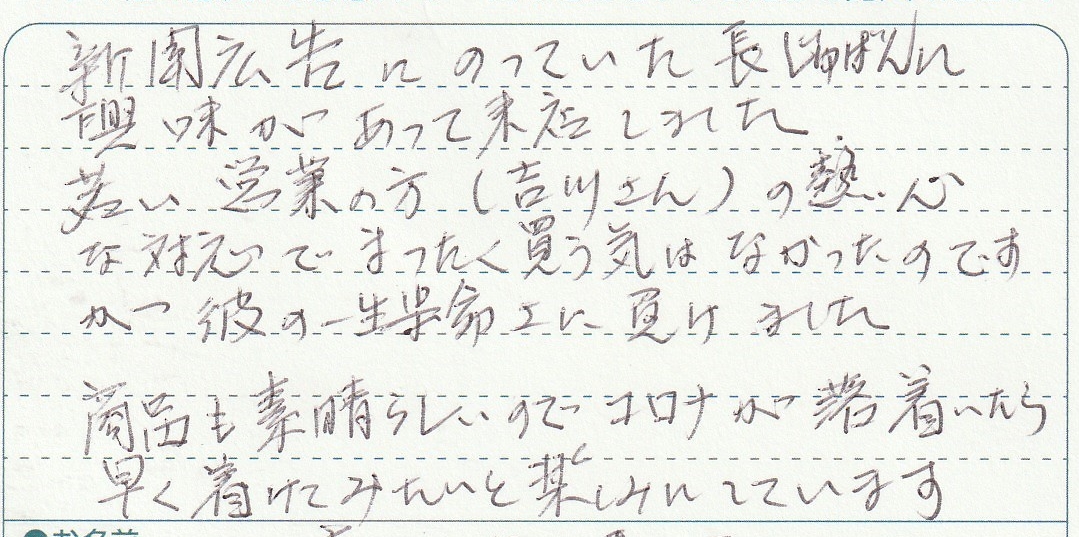 新聞広告にのっていた長じゅばんに
興味があって来店しました。
若い営業の方(吉川さん)の熱心
な対応でまったく買う気はなかったのです
が彼の一生懸命さに負けました
商品も素晴らしいのでコロナが落着いたら
早く着けてみたいと楽しみにしています
お名前